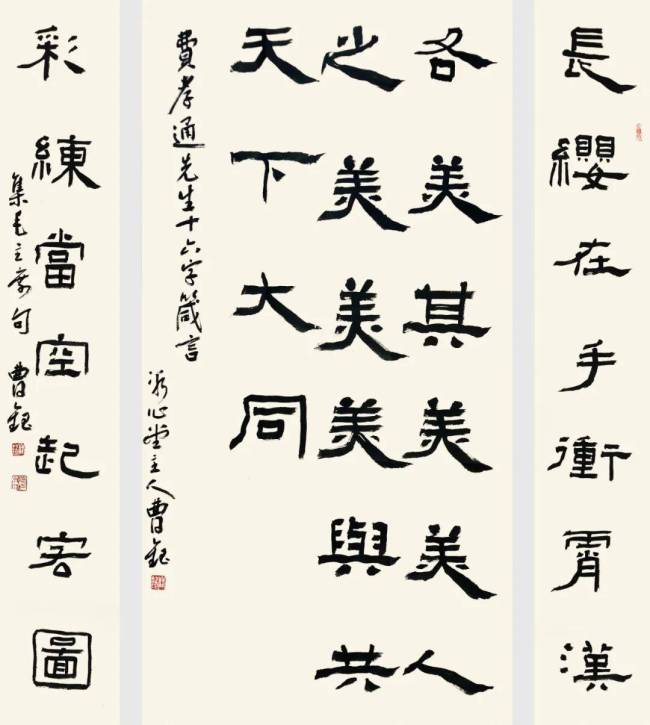 長纓在手衝霄漢
各美其美美人
之美美美與共
天下大同
費孝通先生十六字箴言
心堂主人曹鈺
彩練當空起宏圖
集毛主席句 曹鈺